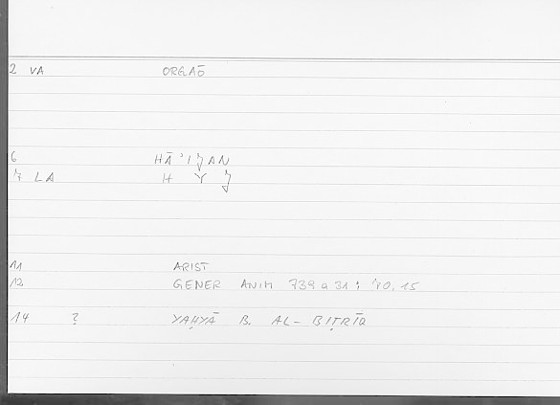 2 VA ORGAŌ
6 HĀ'IǦAN
7 LA H Y Ǧ
11 ARIST
12 GENER ANIM 739 a 31; 40.15
14 ? YAḤYĀ B. AL-BIṬRĪQ